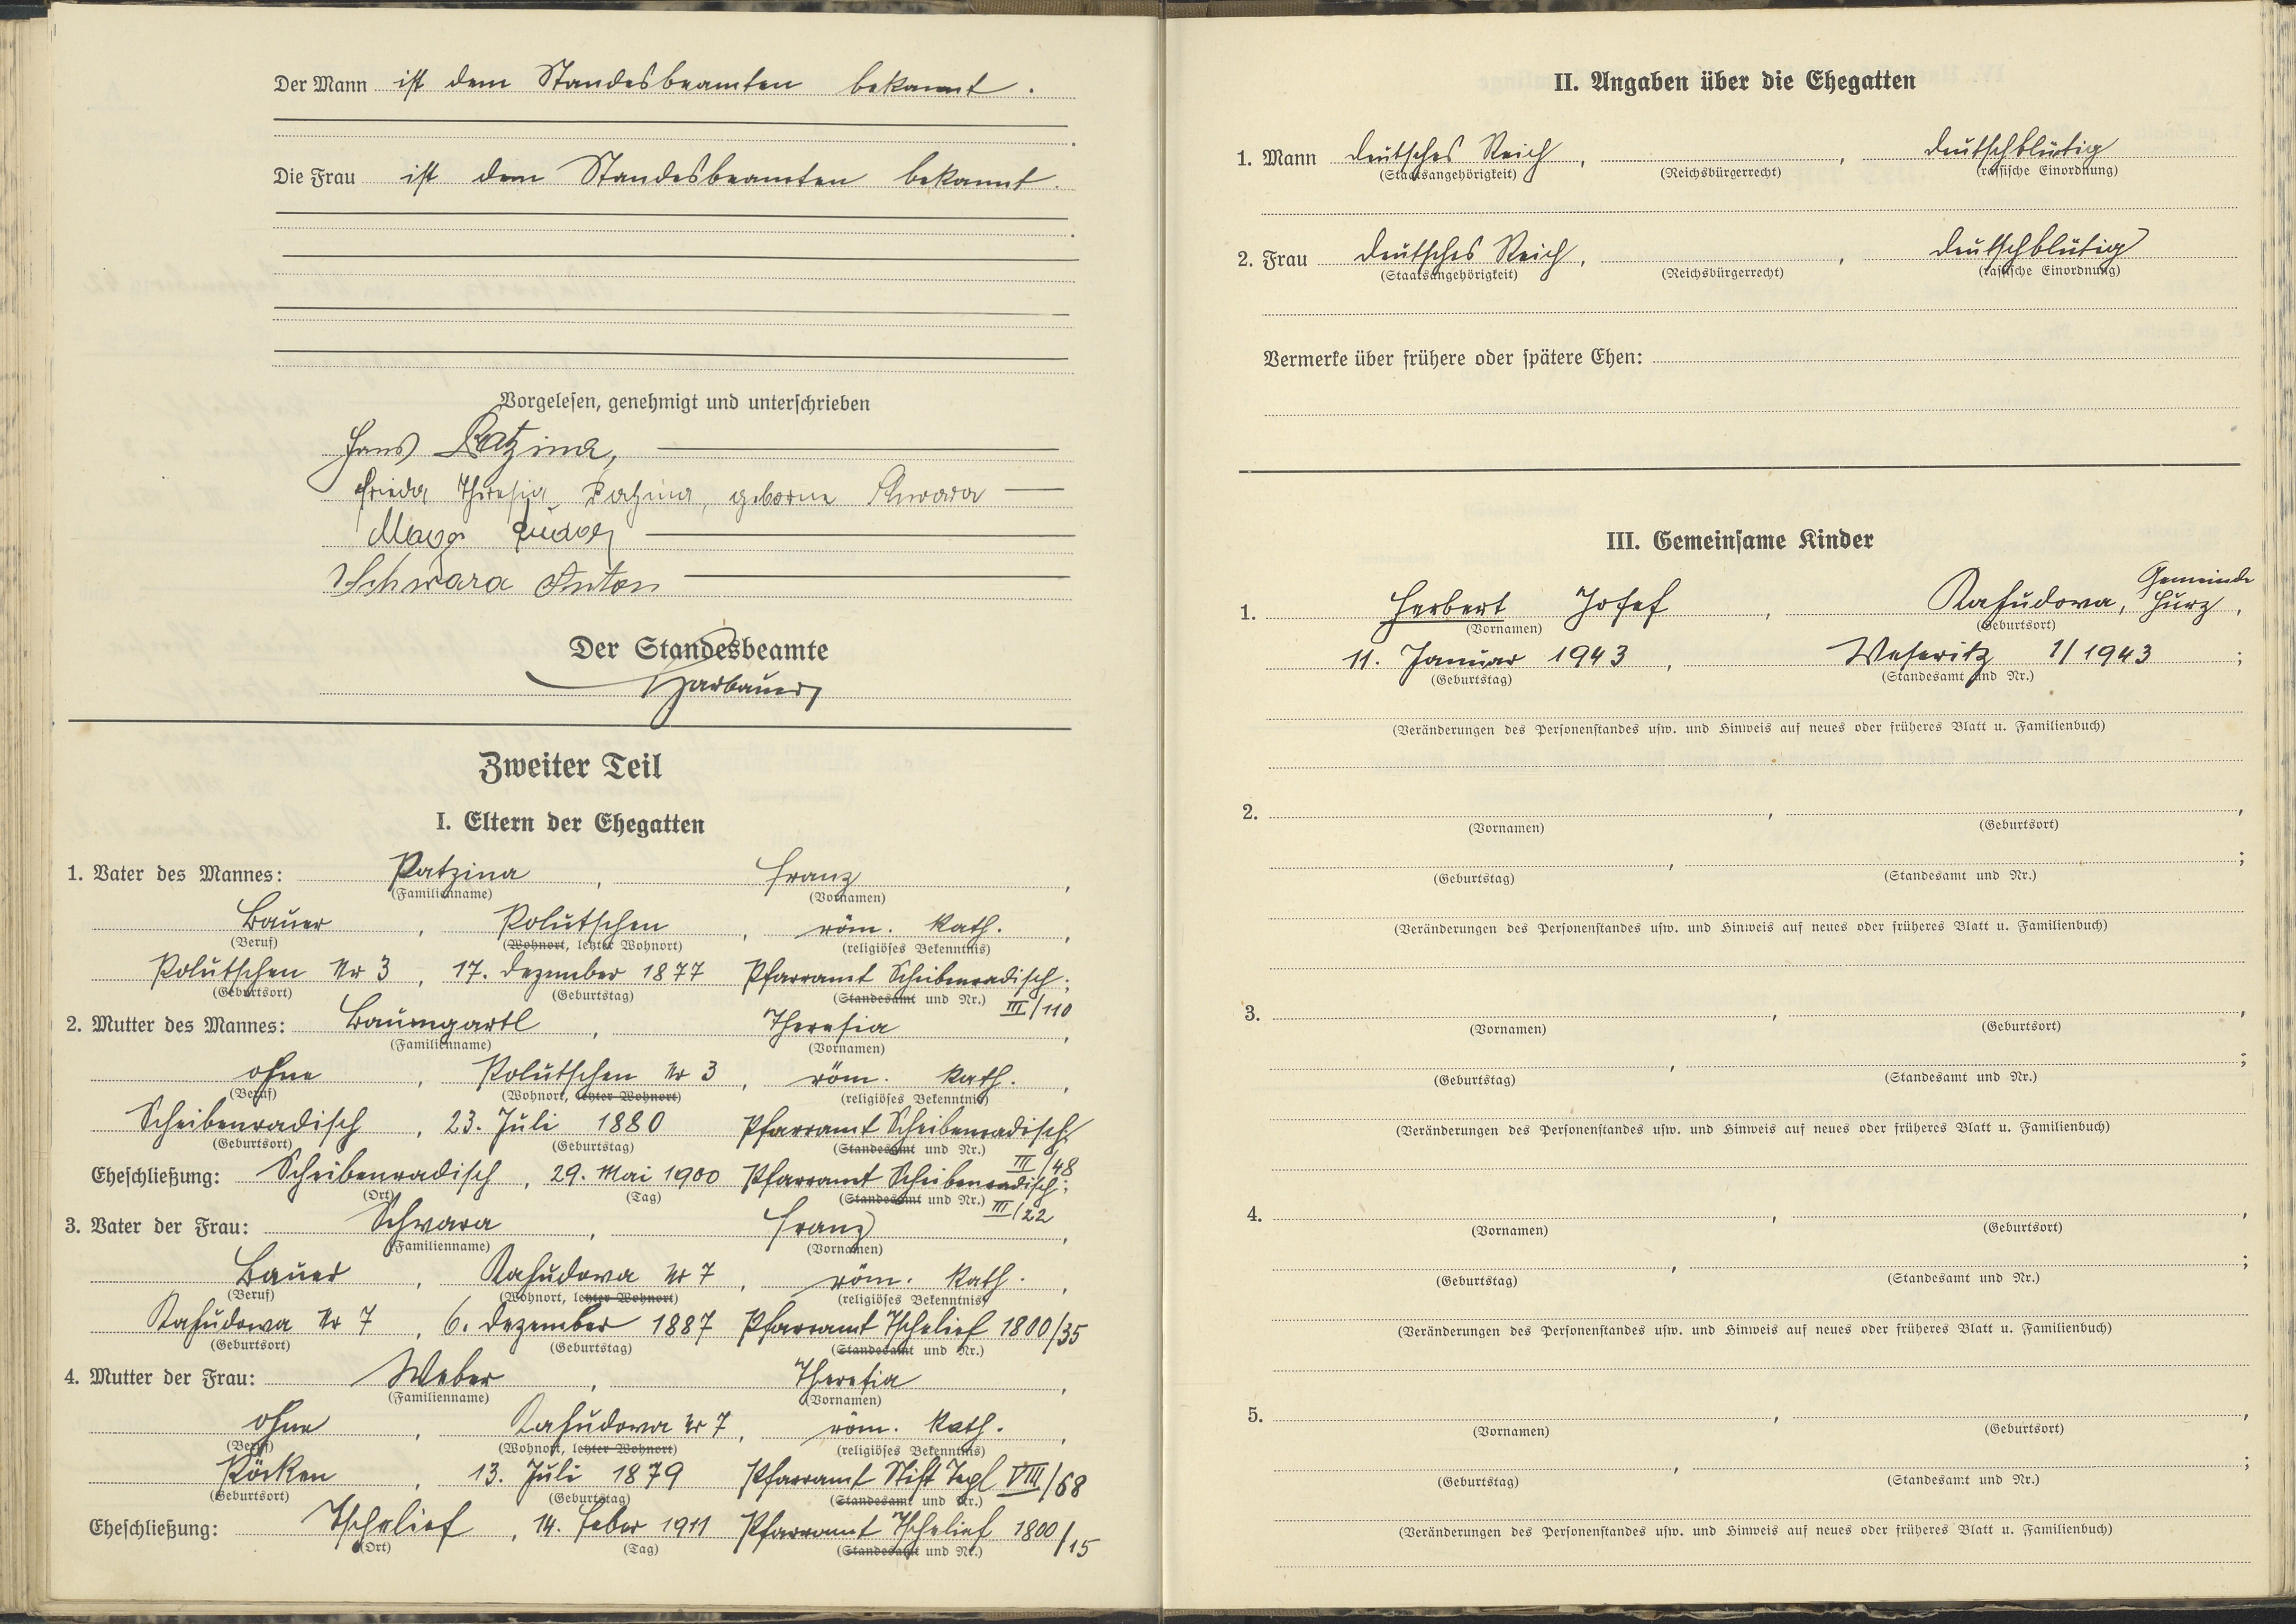 Der Mann ist dem Standesbeamten bekannt.
Die Frau ist dem Standesbeamten bekannt.
Vorgelesen, genehmigt und unterschrieben
Hans Patzina,
Frieda Theresia Patzina, geborne Schwara
Schwara Anton
Der Standesbeamte
Zweiter Teil
I. Eltern der Ehegatten
1. Vater des Mannes: Patzina, Franz,
(Familienname) (Vornamen)
Bauer, Polutschen, röm. kath.,
(Beruf) (Wohnort, letzter Wohnort) (religiöses Bekenntnis)
Polutschen Nr 3, 17. Dezember 1877 Pfarramt Scheibenradisch;
(Geburtsort) (Geburtstag) (Standesamt und Nr.) III/110
2. Mutter des Mannes: Baumgartl, Theresia,
(Familienname) (Vornamen)
ohne, Polutschen Nr 3, röm. kath.,
(Beruf) (Wohnort, letzter Wohnort) (religiöses Bekenntnis)
Scheibenradisch, 23. Juli 1880 Pfarramt Scheibenradisch
(Geburtsort) (Geburtstag) (Standesamt und Nr.) III/48
Eheschließung: Scheibenradisch, 29. Mai 1900 Pfarramt Scheibenradisch;
(Ort) (Tag) (Standesamt und Nr.) III/22
3. Vater der Frau: Schwara, Franz,
(Familienname) (Vornamen)
Bauer, Rasudowa Nr 7, röm. kath.,
(Beruf) (Wohnort, letzter Wohnort) (religiöses Bekenntnis)
Rasudowa Nr 7, 6. Dezember 1887 Pfarramt Tschelief 1800/35
(Geburtsort) (Geburtstag) (Standesamt und Nr.)
4. Mutter der Frau: Weber, Theresia,
(Familienname) (Vornamen)
ohne, Rasudowa Nr 7, röm. kath.,
(Beruf) (Wohnort, letzter Wohnort) (religiöses Bekenntnis)
Pöcken, 13. Juli 1879 Pfarramt Stift Tepl VIII/68
(Geburtsort) (Geburtstag) (Standesamt und Nr.)
Eheschließung: Tschelief, 14. Feber 1911 Pfarramt Tschelief 1800/15
(Ort) (Tag) (Standesamt und Nr.)
II. Angaben über die Ehegatten
1. Mann deutsches Reich, , deutschblütig
(Staatsangehörigkeit) (Reichsbürgerrecht) (rassische Einordnung)
2. Frau deutsches Reich, , deutschblütig
(Staatsangehörigkeit) (Reichsbürgerrecht) (rassische Einordnung)
Vermerke über frühere oder spätere Ehen:
III. Gemeinsame Kinder
1. Herbert Josef, Rasudowa, Gemeinde Hurz,
(Vornamen) (Geburtsort)
11. Januar 1943, Weseritz 1/1943;
(Geburtstag) (Standesamt und Nr.)
(Veränderungen des Personenstandes usw. und Hinweis auf neues oder früheres Blatt u. Familienbuch)
2. , ,
(Vornamen) (Geburtsort)
, ;
(Geburtstag) (Standesamt und Nr.)
(Veränderungen des Personenstandes usw. und Hinweis auf neues oder früheres Blatt u. Familienbuch)
3. , ,
(Vornamen) (Geburtsort)
, ;
(Geburtstag) (Standesamt und Nr.)
(Veränderungen des Personenstandes usw. und Hinweis auf neues oder früheres Blatt u. Familienbuch)
4. , ,
(Vornamen) (Geburtsort)
, ;
(Geburtstag) (Standesamt und Nr.)
(Veränderungen des Personenstandes usw. und Hinweis auf neues oder früheres Blatt u. Familienbuch)
5. , ,
(Vornamen) (Geburtsort)
, ;
(Geburtstag) (Standesamt und Nr.)
(Veränderungen des Personenstandes usw. und Hinweis auf neues oder früheres Blatt u. Familienbuch)